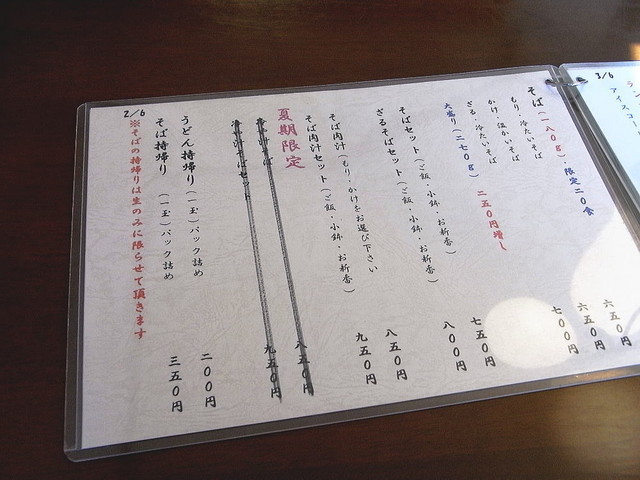 3/6
アイスコー
そば(一八〇g)・限定二〇食
もり・冷たいそば 六五〇円
かけ・温かいそば 六五〇円
ざる・冷たいそば 七〇〇円
大盛り(二七〇g) 二五〇円増し
そばセット(ご飯・小鉢・お新香) 七五〇円
ざるそばセット(ご飯・小鉢・お新香) 八〇〇円
そば肉汁(もり・かけをお選び下さい) 八五〇円
そば肉汁セット(ご飯・小鉢・お新香) 九五〇円
夏期限定
八五〇円
九五〇円
うどん持帰り(一玉)パック詰め 二〇〇円
そば持帰り(一玉)パック詰め 三五〇円
※そばの持帰りは生のみに限らせて頂きます
2/6